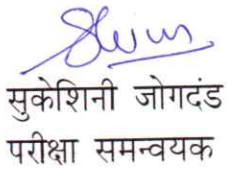 सुकेशिनी जोगदंड
परीक्षा समन्वयक